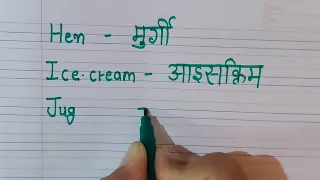 Hen - मुर्गी
Ice.cream - आइसक्रिम
Jug